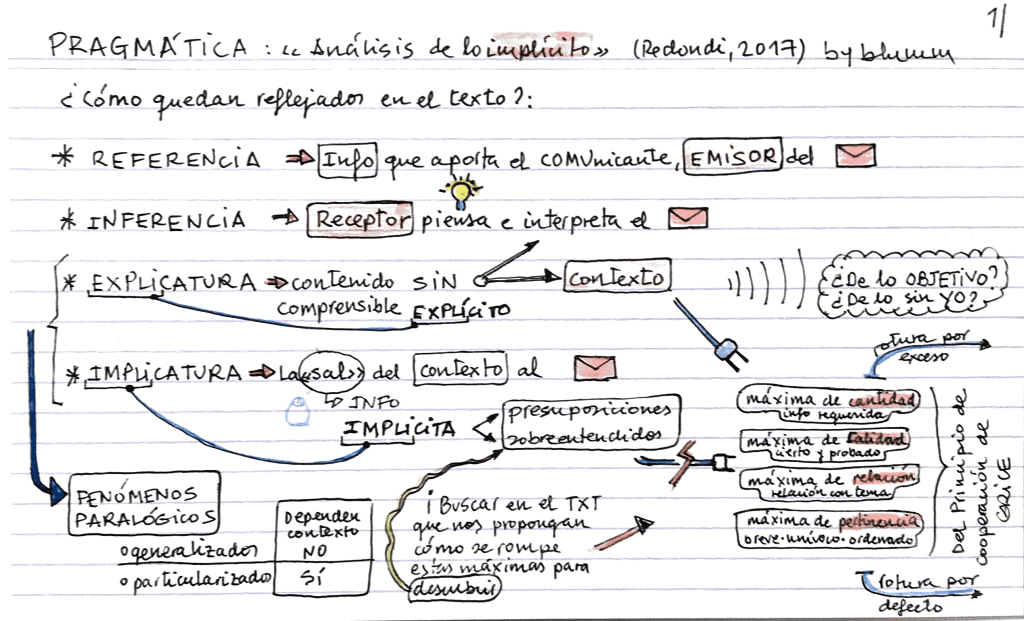 1/
PRAGMÁTICA : «Análisis de lo implícito» (Redondi, 2017) by blumm
¿Cómo quedan reflejados en el texto?:
* REFERENCIA ⇒ Info que aporta el COMUnicante, EMISOR del
* INFERENCIA ⇒ Receptor piensa e interpreta el
* EXPLICATURA ⇒ contenido SIN contexto
comprensible EXPLÍCITO
¿De lo OBJETIVO?
¿De lo sin YO?
* IMPLICATURA ⇒ La «sal» del contexto al
↳ INFO
IMPLÍCITA
presuposiciones
sobreentendidos
rotura por
exceso
máxima de cantidad
info requerida
máxima de calidad
cierto y probado
máxima de relación
relación con tema
máxima de pertinencia
breve·unívoco·ordenado
Del Principio de
cooperación de
GRICE
rotura por
defecto
FENÓMENOS
PARALÓGICOS
Dependen
contexto
o generalizados NO
o particularizado SÍ
¡Buscar en el TXT
que nos propongan
cómo se rompe
estas máximas para
descubrir